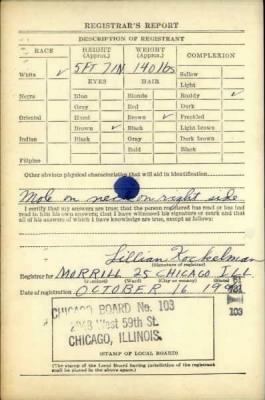 REGISTRAR'S REPORT
DESCRIPTION OF REGISTRANT
RACE HEIGHT (Approx.) WEIGHT (Approx.) COMPLEXION
5 FT 7 IN 140 lbs Sallow
White ✓ EYES HAIR Light
Negro Blue Blonde Ruddy ✓
Gray Red Dark
Oriental Hazel Brown ✓ Freckled
Brown ✓ Black Light brown
Indian Black Gray Dark brown
Bald Black
Filipino
Other obvious physical characteristics that will aid in identification
Mole on neck on right side
I certify that my answers are true; that the person registered has read or has had
read to him his own answers; that I have witnessed his signature or mark and that
all of his answers of which I have knowledge are true, except as follows:
Lillian
(Signature of registrar)
Registrar for MORRILL 25 CHICAGO ILL
(Precinct) (Ward) (City or county) (State)
Date of registration OCTOBER 16
CHICAGO BOARD No. 103
West 59th St.
CHICAGO, ILLINOIS.
103
(STAMP OF LOCAL BOARD)
(The stamp of the Local Board having jurisdiction of the registrant
shall be placed in the above space.)